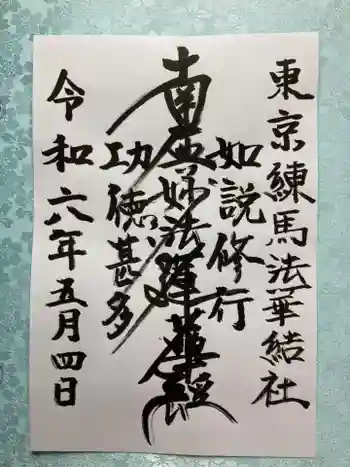 東京練馬法華結社
如説修行
南無妙法蓮華経
功徳甚多
令和六年五月四日